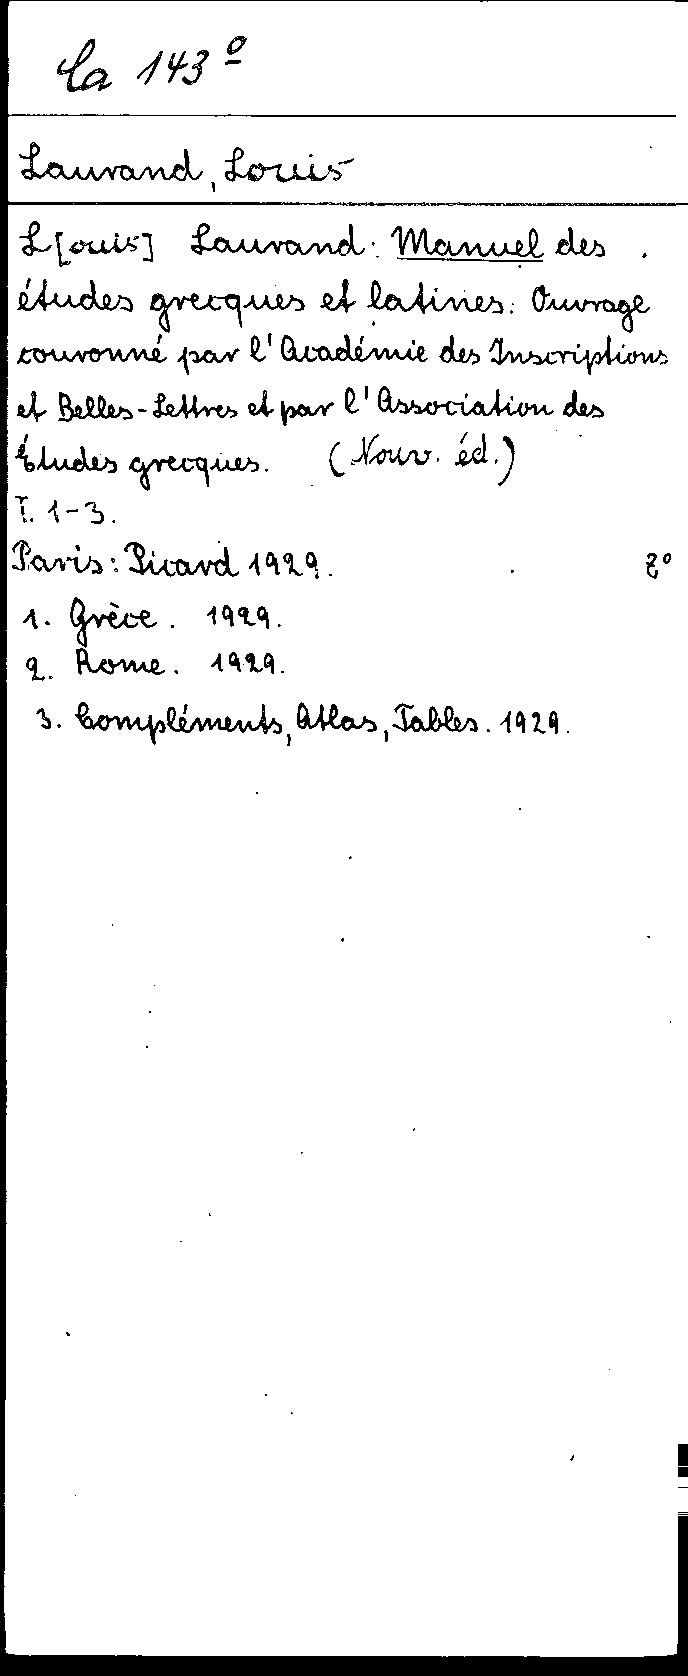 Ca 143º
Laurand, Louis
L[ouis] Laurand: Manuel des
études grecques et latines. Ouvrage
couronné par l'Académie des Inscriptions
et Belles-Lettres et par l'Association des
Études grecques. (Nouv. éd.)
T. 1-3.
Paris: Picard 1929. 8°
1. Grèce. 1929.
2. Rome. 1929.
3. Compléments, Atlas, Tables. 1929.